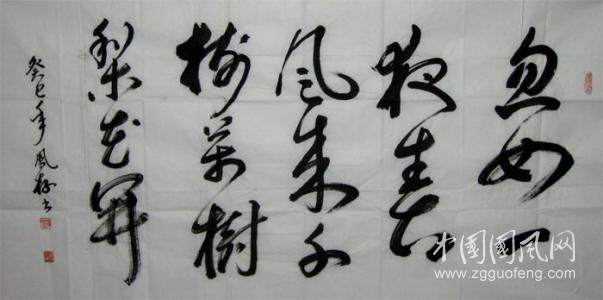 忽如一
夜春
风来千
树萬樹
梨花开
癸巳年風
中国国风网
www.zgguofeng.com